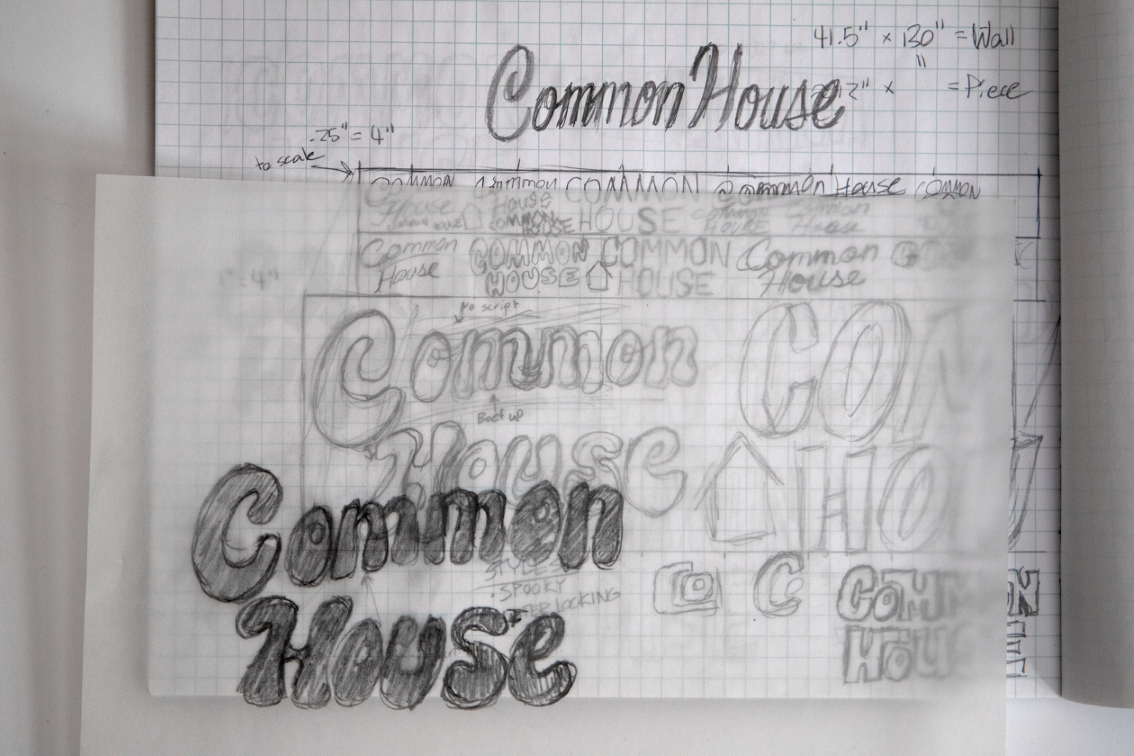 41.5" × 130" = Wall
Common House
12" × " = Piece
.25" = 4"
to scale
COMMON Common COMMON Common House COMMON
House House HOUSE House
COMMON HOUSE
Common COMMON COMMON Common
House HOUSE HOUSE House
1" = 4"
No script
Common COM
House HO
Common
STYLES
• SPOOKY
House
CO C COMMON
HOUSE